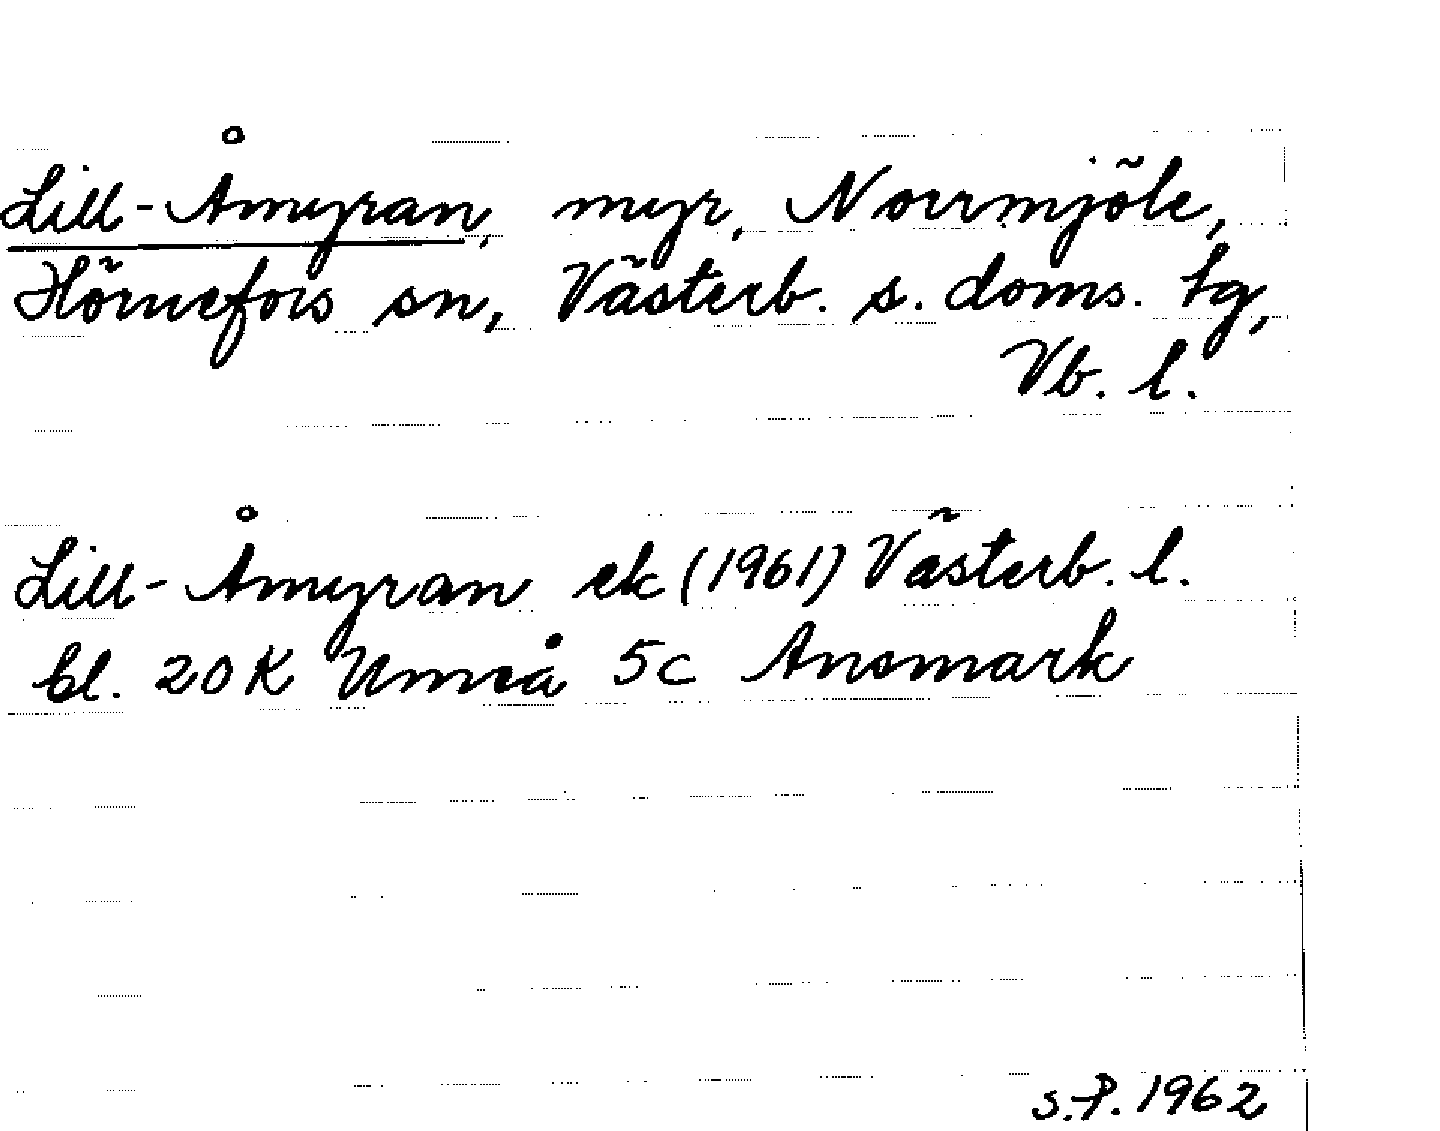 Lill-Åmyran, myr, Norrmjöle,
Hörnefors sn, Västerb. s. doms. tg,
Vb. l.
Lill-Åmyran ek (1961) Västerb. l.
bl. 20 K Umeå 5c Ansmark
S.P. 1962